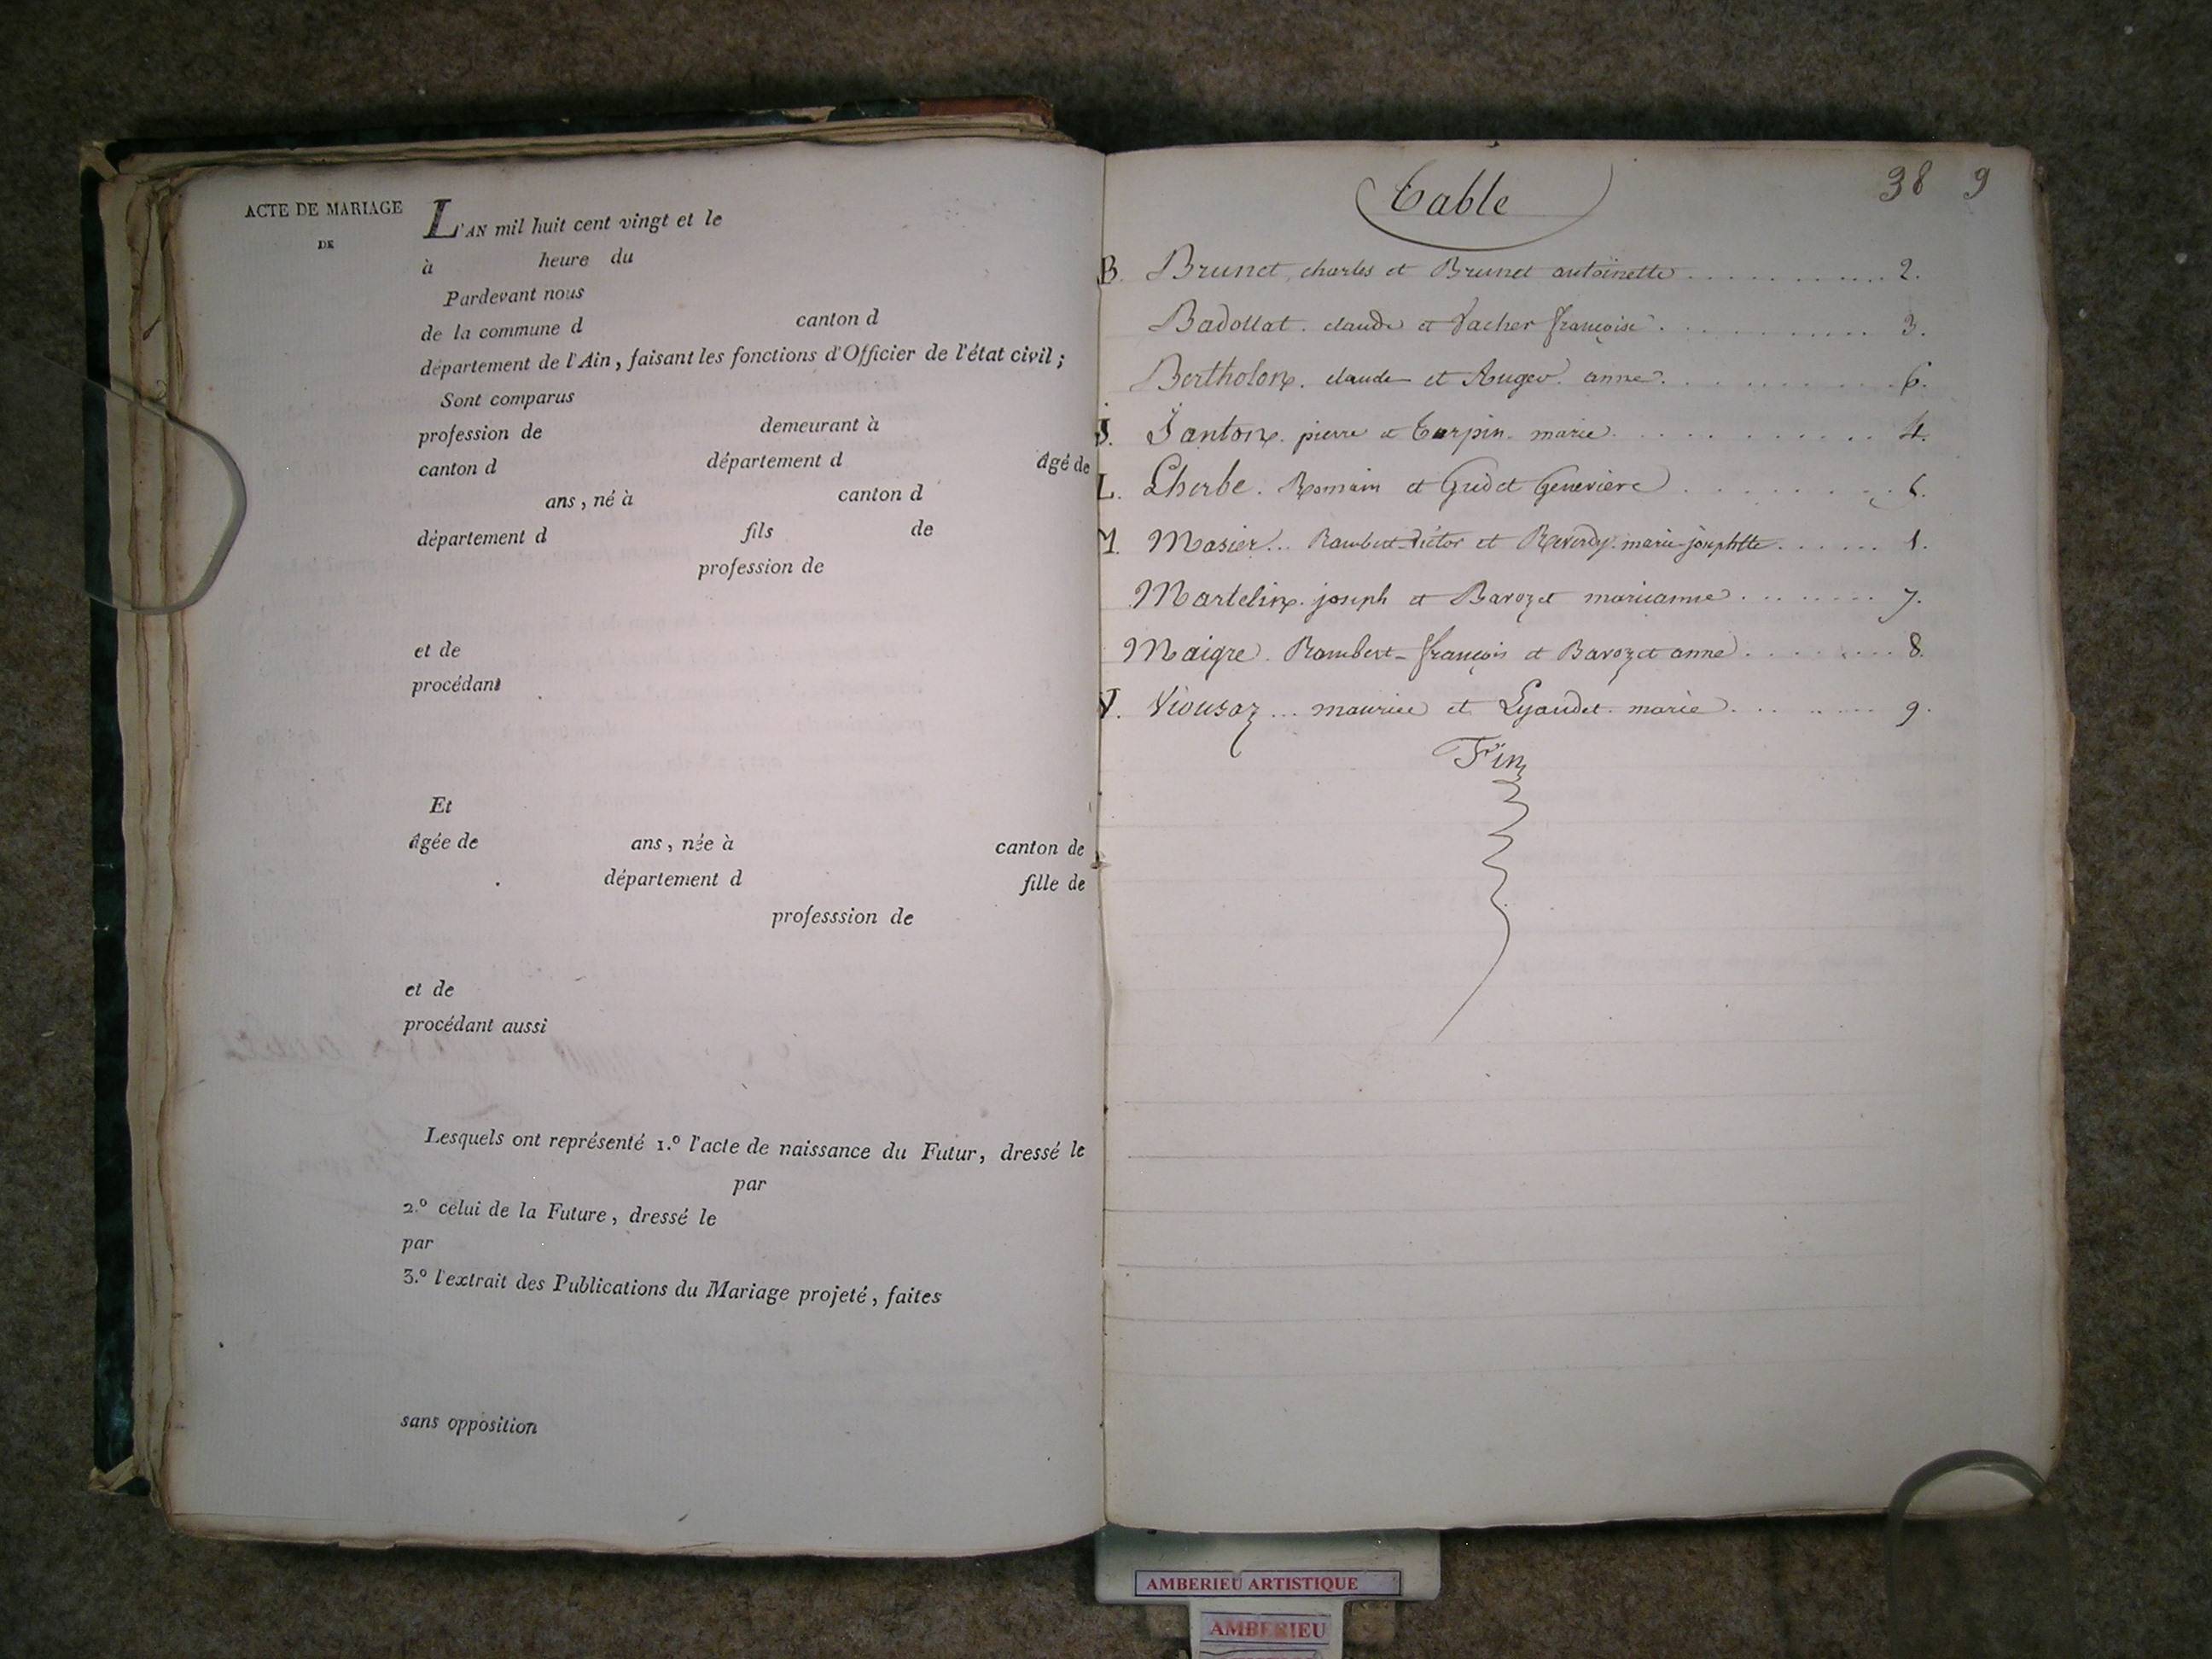 ACTE DE MARIAGE
DE
L'AN mil huit cent vingt et le
à heure du
Pardevant nous
de la commune d canton d
département de l'Ain, faisant les fonctions d'Officier de l'état civil;
Sont comparus
profession de demeurant à
canton d département d âgé de
ans, né à canton d
département d fils de
profession de
et de
procédant
Et
âgée de ans, née à canton de
département d fille de
professsion de
et de
procédant aussi
Lesquels ont représenté 1.º l'acte de naissance du Futur, dressé le
par
2.º celui de la Future, dressé le
par
3.º l'extrait des Publications du Mariage projeté, faites
sans opposition
Table 38 9
B. Brunet, charles et Brunet antoinette ........... 2.
Badollat. claude et Vacher françoise ........... 3.
Bertholon. claude et Auger. anne ........... 6.
J. Janton. pierre et Turpin. marie ........... 4.
L. Lherbe. Romain et Gudet Genevieve ........
M. Masier... Rambert-Victor et Reverdy. marie-josephtte ...... 1.
Martelin. joseph et Bavozet marieanne ........ 7.
Maigre. Rambert-françois et Bavozet anne ........ 8.
V. Viousaz ... maurice et Lyaudet. marie ......... 9.
Fin
AMBERIEU ARTISTIQUE
AMBERIEU